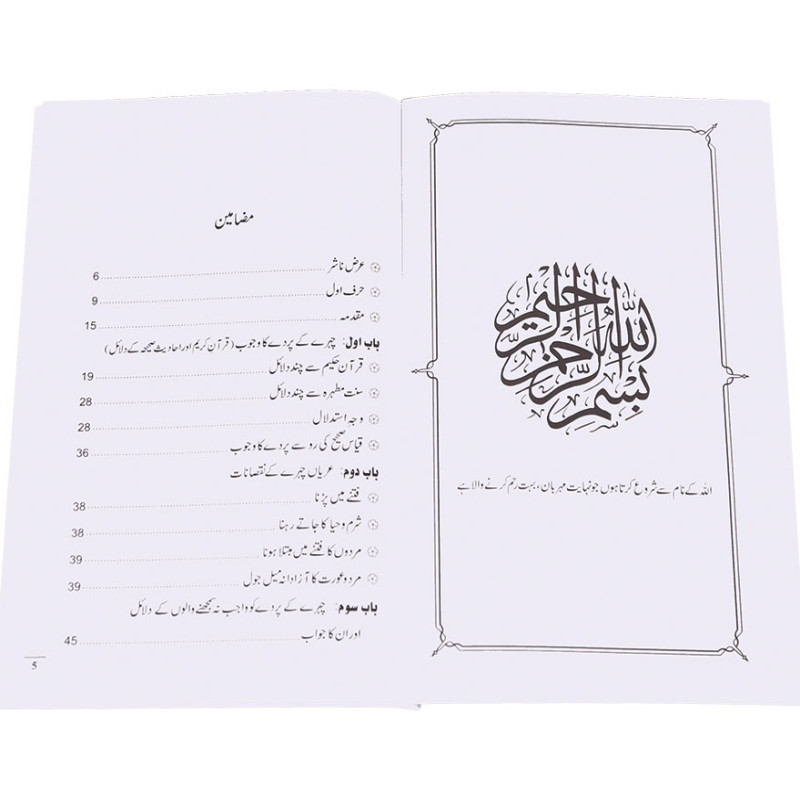 بسم الله الرحمن الرحيم
اللہ کے نام سے شروع کرتا ہوں جو نہایت مہربان، بہت رحم کرنے والا ہے
مضامین
عرض ناشر 6
حرف اول 9
مقدمہ 15
باب اول: چہرے کے پردے کا وجوب (قرآن کریم اور احادیث صحیحہ کے دلائل)
قرآن حکیم سے چند دلائل 19
سنت مطہرہ سے چند دلائل 28
وجہ استدلال 28
قیاس صحیح کی رو سے پردے کا وجوب 36
باب دوم: عریاں چہرے کے نقصانات
فتنے میں پڑنا 38
شرم و حیا کا جاتے رہنا 38
مردوں کا فتنے میں مبتلا ہونا 39
مرد و عورت کا آزادانہ میل جول 39
باب سوم: چہرے کے پردے کو واجب نہ سمجھنے والوں کے دلائل
اور ان کا جواب 45
5